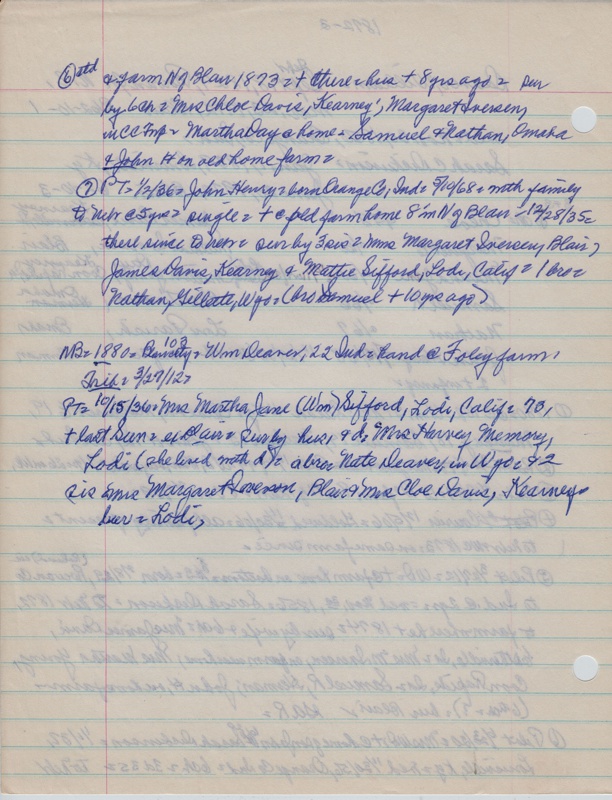 ⑥ std & farm N of Blair 1873 = + there = hus + 8 yrs ago = sur
by 6 ch = Mrs Chloe Davis, Kearney, Margaret Iversen,
in CC Twp = Martha Day @ home = Samuel & Nathan, Omaha
& John H on old home farm =
⑦ PT = 1/2/36 = John Henry = born Co, Ind = 5/10/68 = with family
to Nebr @ 5 yrs = single = + @ old farm home 8 m N of Blair = 12/28/35 =
there since to Nebr = sur by 3 sis = Mrs Margaret Iversen, Blair,
James Davis, Kearney & Mettie Sifford, Lodi, Calif = 1 bro =
Nathan, Gillette, Wyo = (bro Samuel + 10 yrs ago)
NB = 1880 = Blair 103 = Wm Deaver, 22 Ind = hand @ Foley farm,
Trib = 3/27/12 =
PT = 10/15/36 = Mrs Martha Jane (Wm) Sifford, Lodi, Calif = 70,
+ last Sun = of Blair = sur by hus, & d, Mrs Harvey Memory,
Lodi (she lived with d) = a bro Nate Deaver, in Wyo = & 2
sis = Mrs Margaret Iverson, Blair & Mrs Cloe Davis, Kearney =
bur = Lodi,